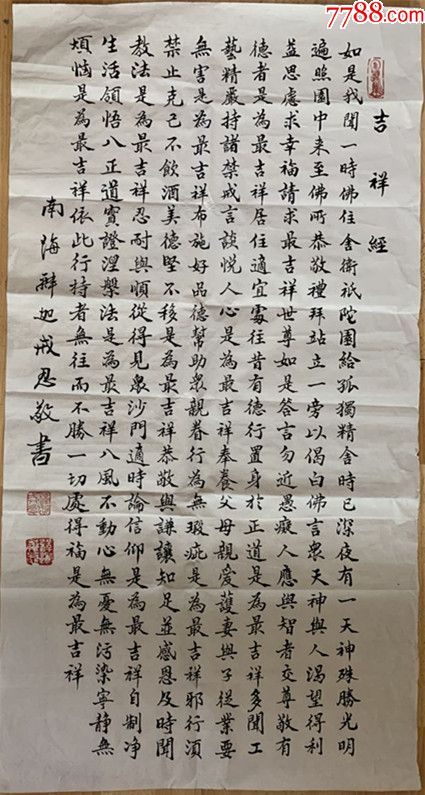 7788.com
吉祥經
如是我聞一時佛住舍衛祇陀園給孤獨精舍時已深夜有一天神殊勝光明
遍照園中来至佛所恭敬禮拜站立一旁以偈白佛言衆天神與人渴望得利
益思慮求幸福請求最吉祥世尊如是答言勿近愚癡人應與智者交尊敬有
德者是為最吉祥居住適宜處往昔有德行置身於正道是為最吉祥多聞工
藝精嚴持諸禁戒言談悦人心是為最吉祥奉養父母親愛護妻與子從業要
無害是為最吉祥布施好品德幫助衆親眷行為無瑕疵是為最吉祥邪行須
禁止克己不飲酒美德堅不移是為最吉祥恭敬與謙讓知足並感恩及時聞
教法是為最吉祥忍耐與順從得見衆沙門適時論信仰是為最吉祥自制净
生活領悟八正道實證涅槃法是為最吉祥八風不動心無憂無污染寧静無
煩惱是為最吉祥依此行持者無往而不勝一切處得福是為最吉祥
南海釋迦戒忍敬書